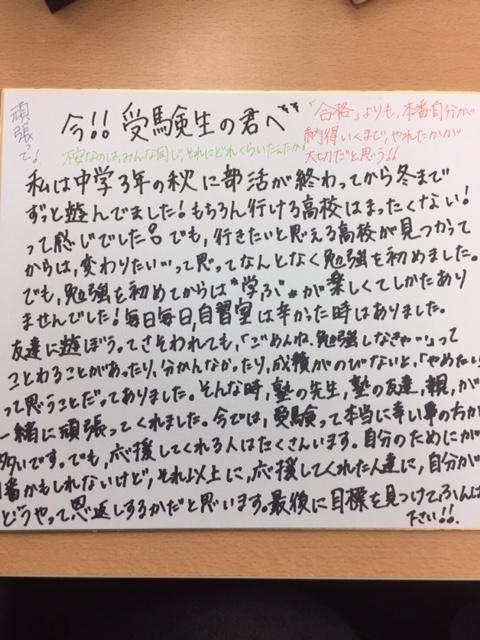 頑張って!
今!! 受験生の君へ
「合格」よりも、本番自分が
納得いくまで、やれたかが
大切だと思う!!
不安なのは、みんな同じ。それにどれくらいたえたか。
私は中学3年の秋に部活が終わってから冬まで
ずっと遊んでました!もちろん行ける高校はまったくない!
って感じでした。でも、行きたいと思える高校が見つかって
からは、変わりたい…って思ってなんとなく勉強を初めました。
でも、勉強を初めてからは"学ぶ"が楽しくてしかたあり
ませんでした!毎日毎日、自習室は辛かった時はありました。
友達に遊ぼうってさそわれても、「ごめんね、勉強しなきゃ…」って
ことわることがあったり、分かんなかったり、成績がのびないと、「やめたい」
って思うことだってありました。そんな時、塾の先生、塾の友達、親、が
一緒に頑張ってくれました。今では、受験って本当に辛い事の方が
多いです。でも、応援してくれる人はたくさんいます。自分のためにが
1番かもしれないけど、それ以上に、応援してくれた人達に、自分が
どうやって思返しするかだと思います。最後に目標を見つけてふんば
下さい!!